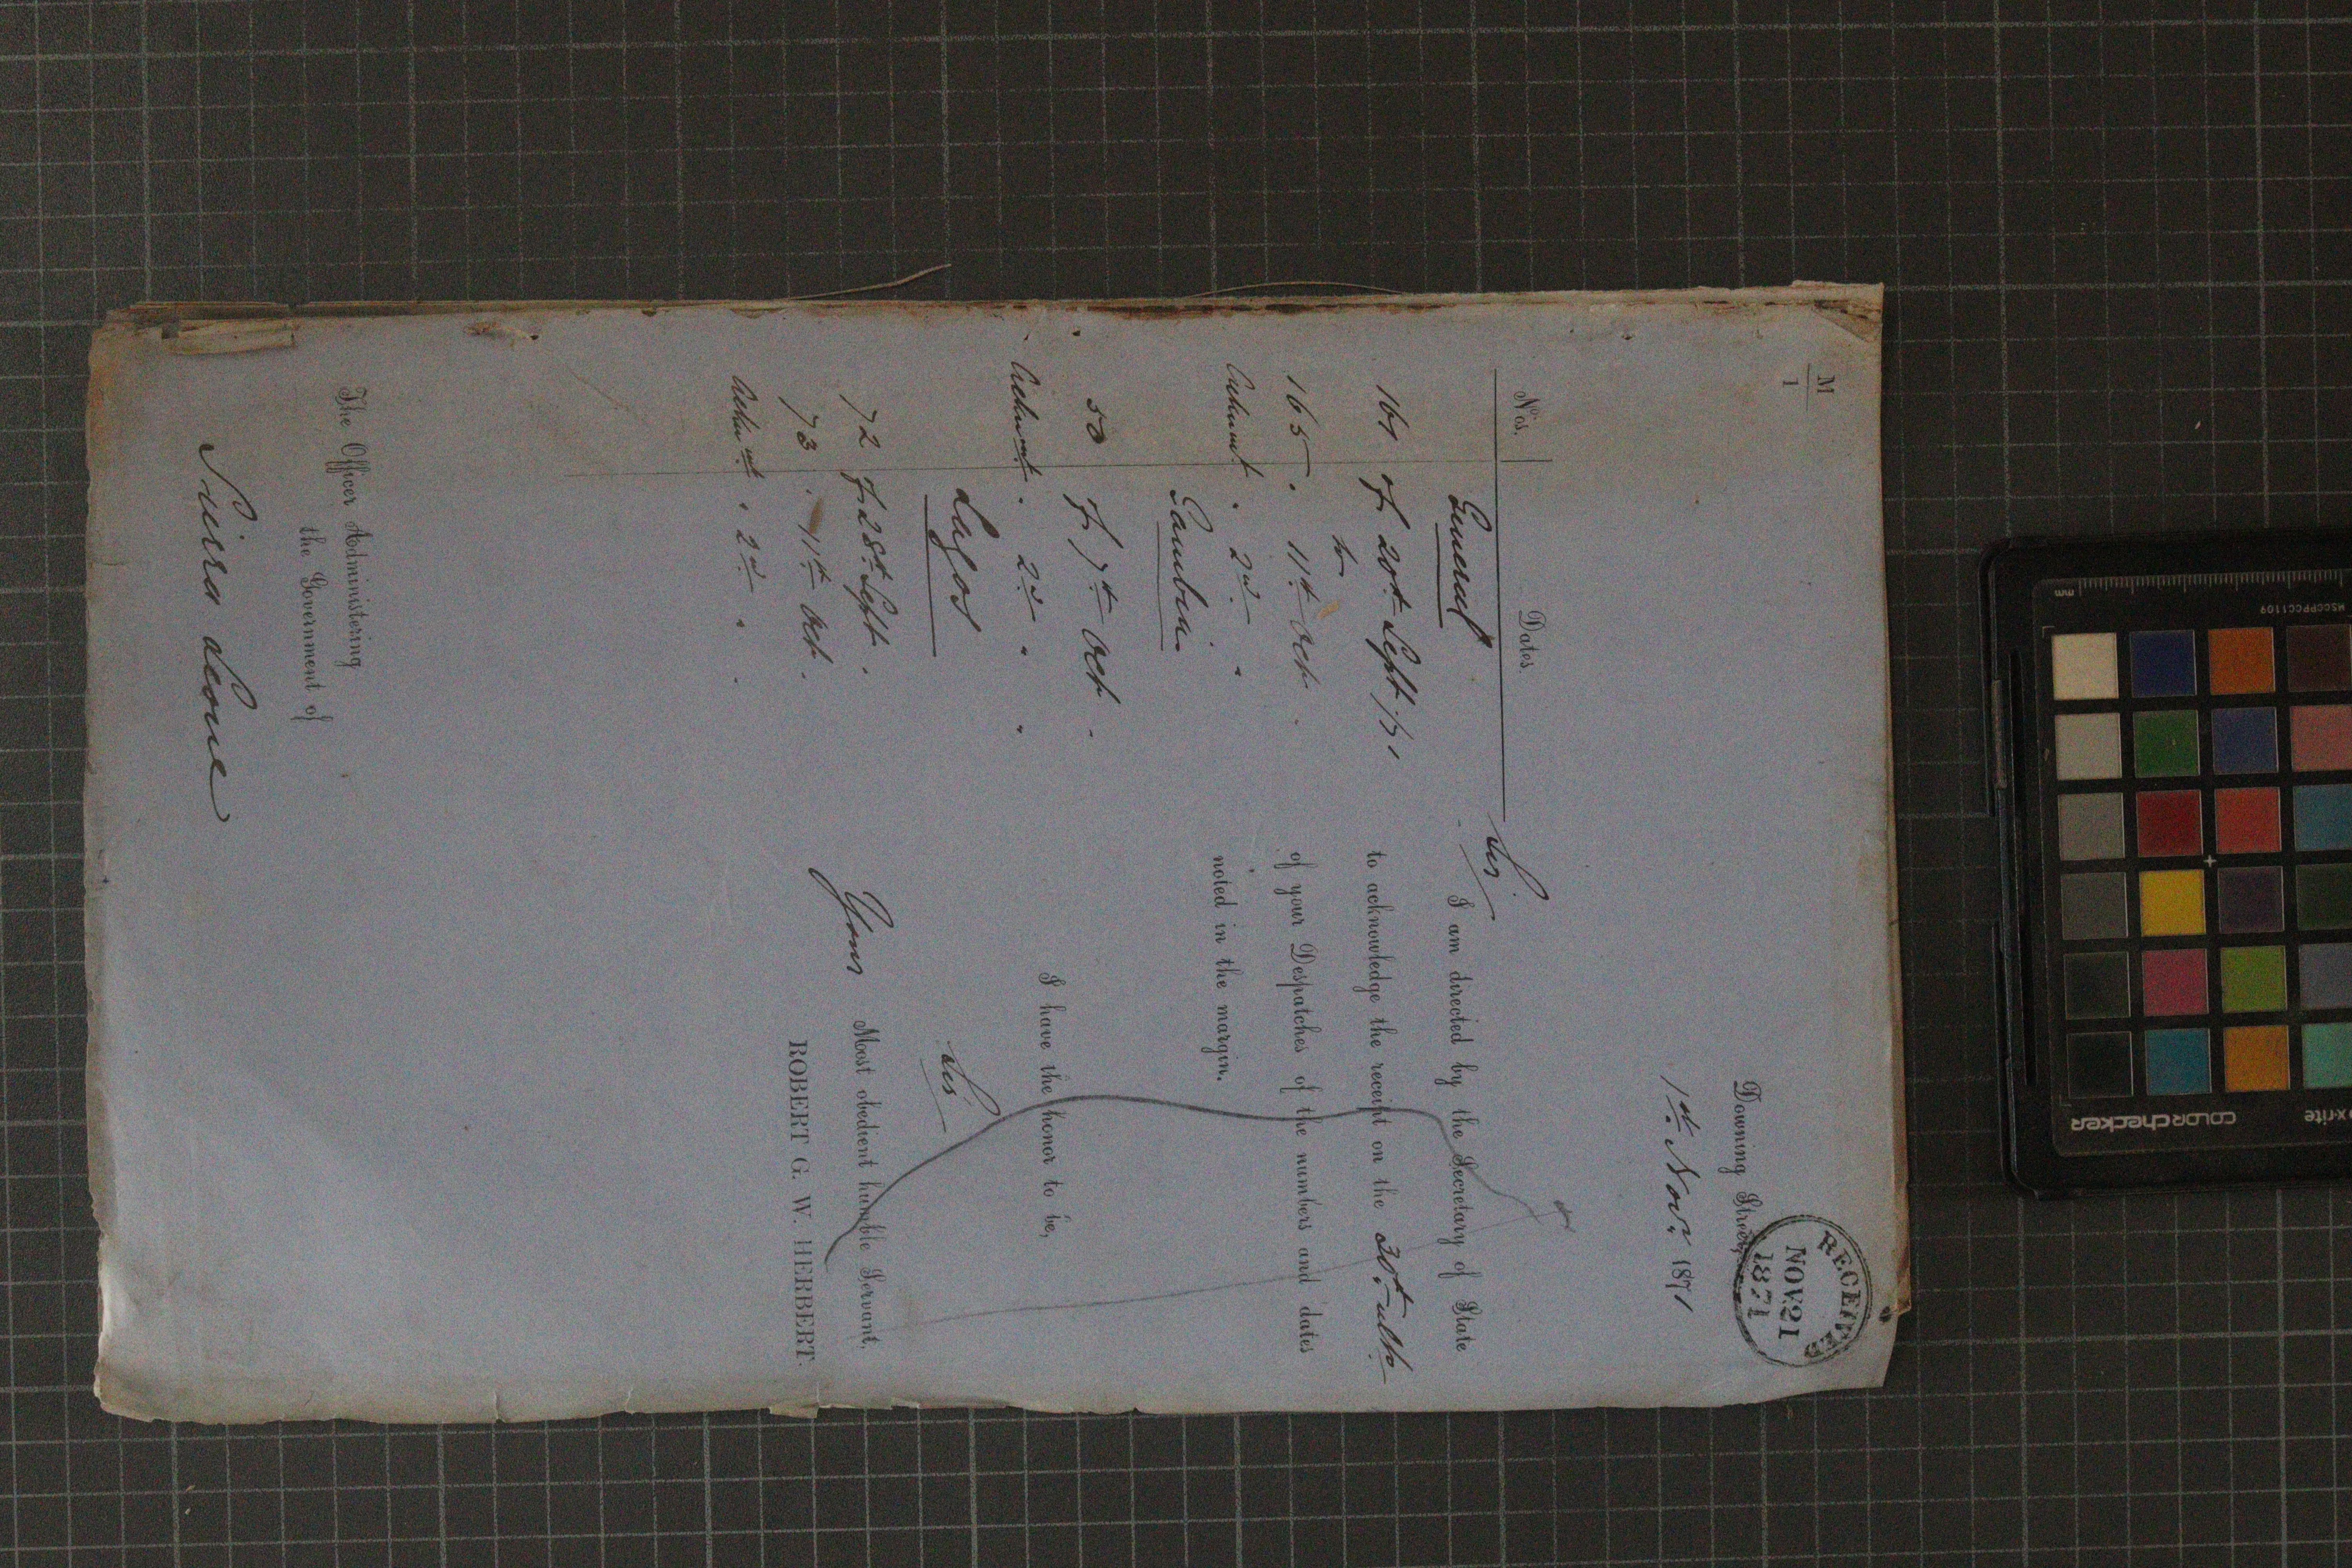 M
1
RECEIVED
NOV 21
1871
Downing Street,
1st. Nov. 1871
Nos. Dates.
General
161 of 20th Sept /71
to
165 . 11th Oct .
2nd .
Gambia
50 of 7th Oct .
2nd . .
Lagos
72 of 28th Sept .
73 . 11th Oct .
. 2nd . .
Sir
I am directed by the Secretary of State
to acknowledge the receipt on the 30th ulto
of your Despatches of the numbers and dates
noted in the margin.
I have the honor to be,
Sir
Your Most obedient humble Servant,
ROBERT G. W. HERBERT.
The Officer Administering
the Government of
Sierra Leone
mm
MSCCPPCC1109
x-rite
colorchecker